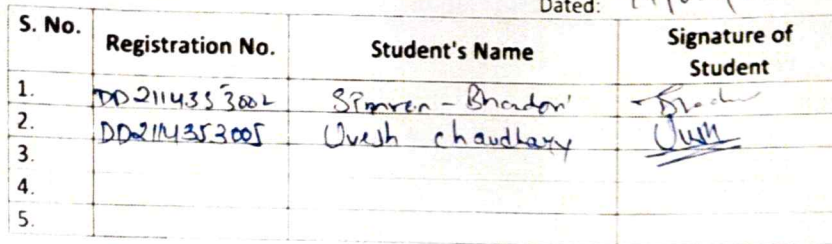 Dated:
S. No. Registration No. Student's Name Signature of Student
1. DD2114353002 Simran - Bhandari
2. DD2114353005 Uvesh chaudhary
3.
4.
5.